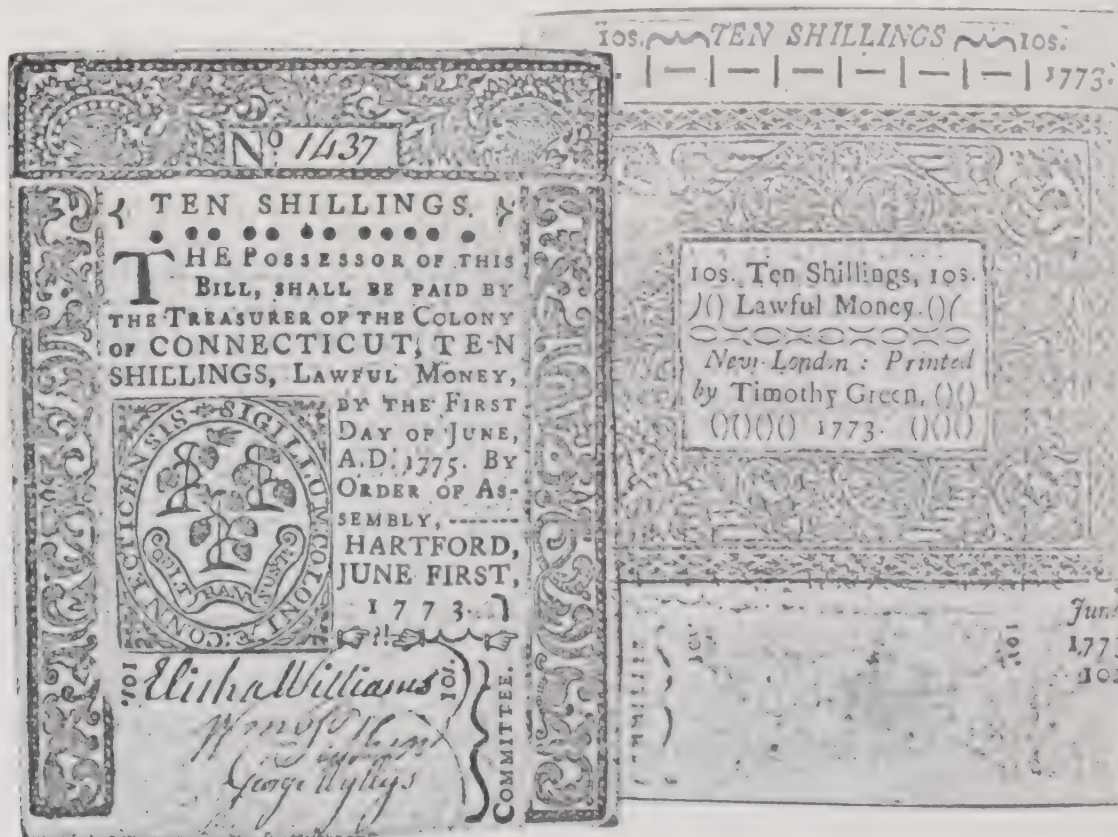 Nº 1437
TEN SHILLINGS.
THE POSSESSOR OF THIS
BILL, SHALL BE PAID BY
THE TREASURER OF THE COLONY
OF CONNECTICUT, TEN
SHILLINGS, LAWFUL MONEY,
BY THE FIRST
DAY OF JUNE,
A.D. 1775. BY
ORDER OF AS-
SEMBLY, -------
HARTFORD,
JUNE FIRST,
1773.
SIGILLUM COLONIÆ CONNECTICENSIS
QUI TRAN SUST
10s. Elisha Williams 10s.
George Wyllys
COMMITTEE.
10s. TEN SHILLINGS 10s.
1773.
10s. Ten Shillings, 10s.
)() Lawful Money. ()(
New-London : Printed
by Timothy Green, ()()
()()()() 1773. ()()()
1773